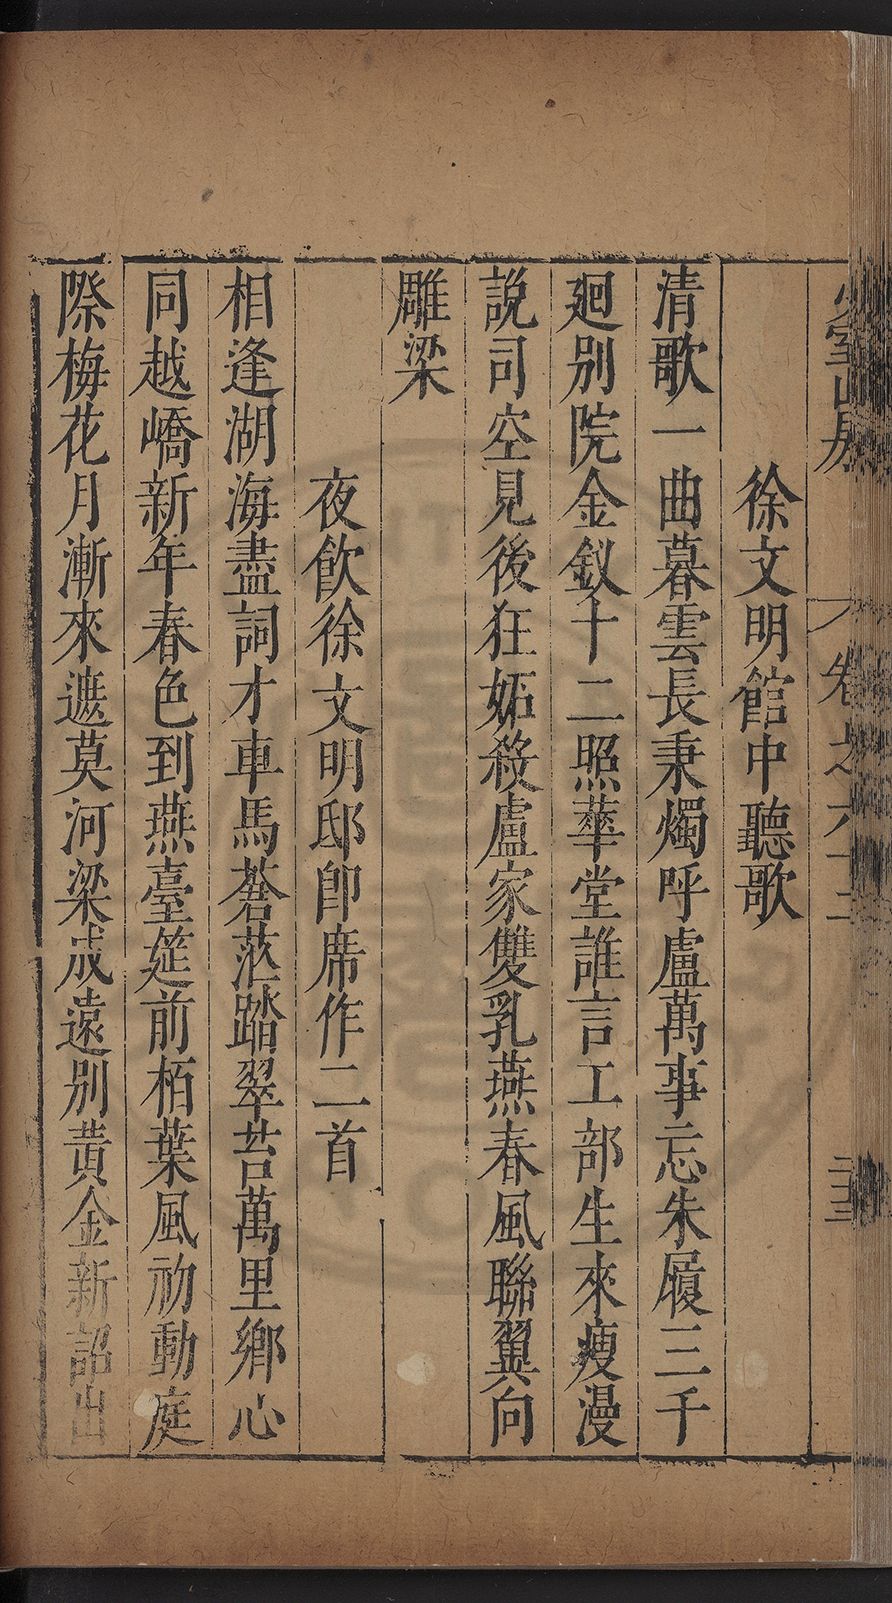 少室山房
卷之六十三
二十三
徐文明館中聽歌
清歌一曲暮雲長秉燭呼盧萬事忘朱履三千
廻别院金釵十二照華堂誰言工部生來瘦漫
說司空見後狂妬殺盧家雙乳燕春風聯翼向
雕梁
夜飲徐文明邸卽席作二首
相逢湖海盡詞才車馬蒼茫踏翠苔萬里鄉心
同越嶠新年春色到燕臺筵前栢葉風初動庭
際梅花月漸來遮莫河梁成遠别黃金新詔出